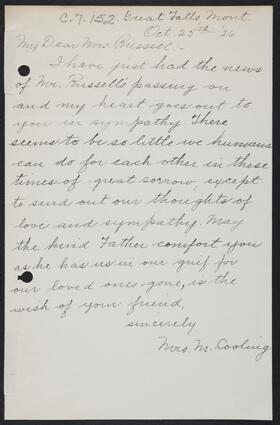 C.7.152 Great Falls, Mont.
Oct. 25th 26
My Dear Mrs. Russell -
I have just had the news
of Mr. Russell's passing on
and my heart goes out to
you in sympathy There
seems to be so little we humans
can do for each other in these
times of great sorrow, except
to send out our thoughts of
love and sympathy. May
the kind Father comfort you
as he has us in our grief for
our loved ones gone, is the
wish of your friend,
sincerely
Mrs. M. Cooling